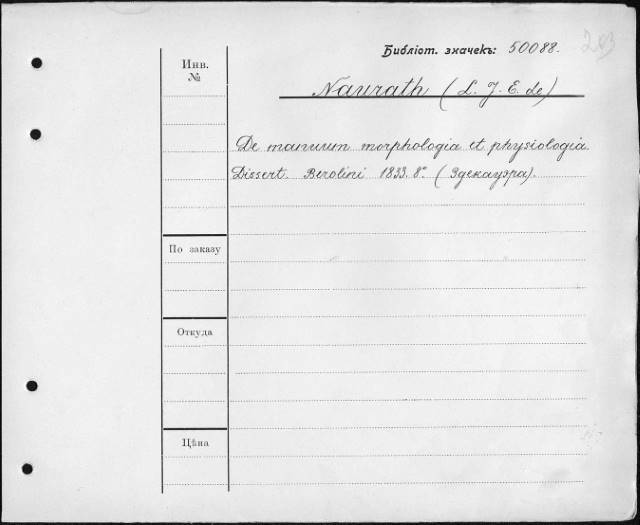 203
Библіот. значекъ: 50088.
Инв.
№
Naurath (L. J. E. de)
De manuum morphologia et physiologia.
Dissert. Berolini 1833. 8°. (Здекауэра).
По заказу
Откуда
Цѣна